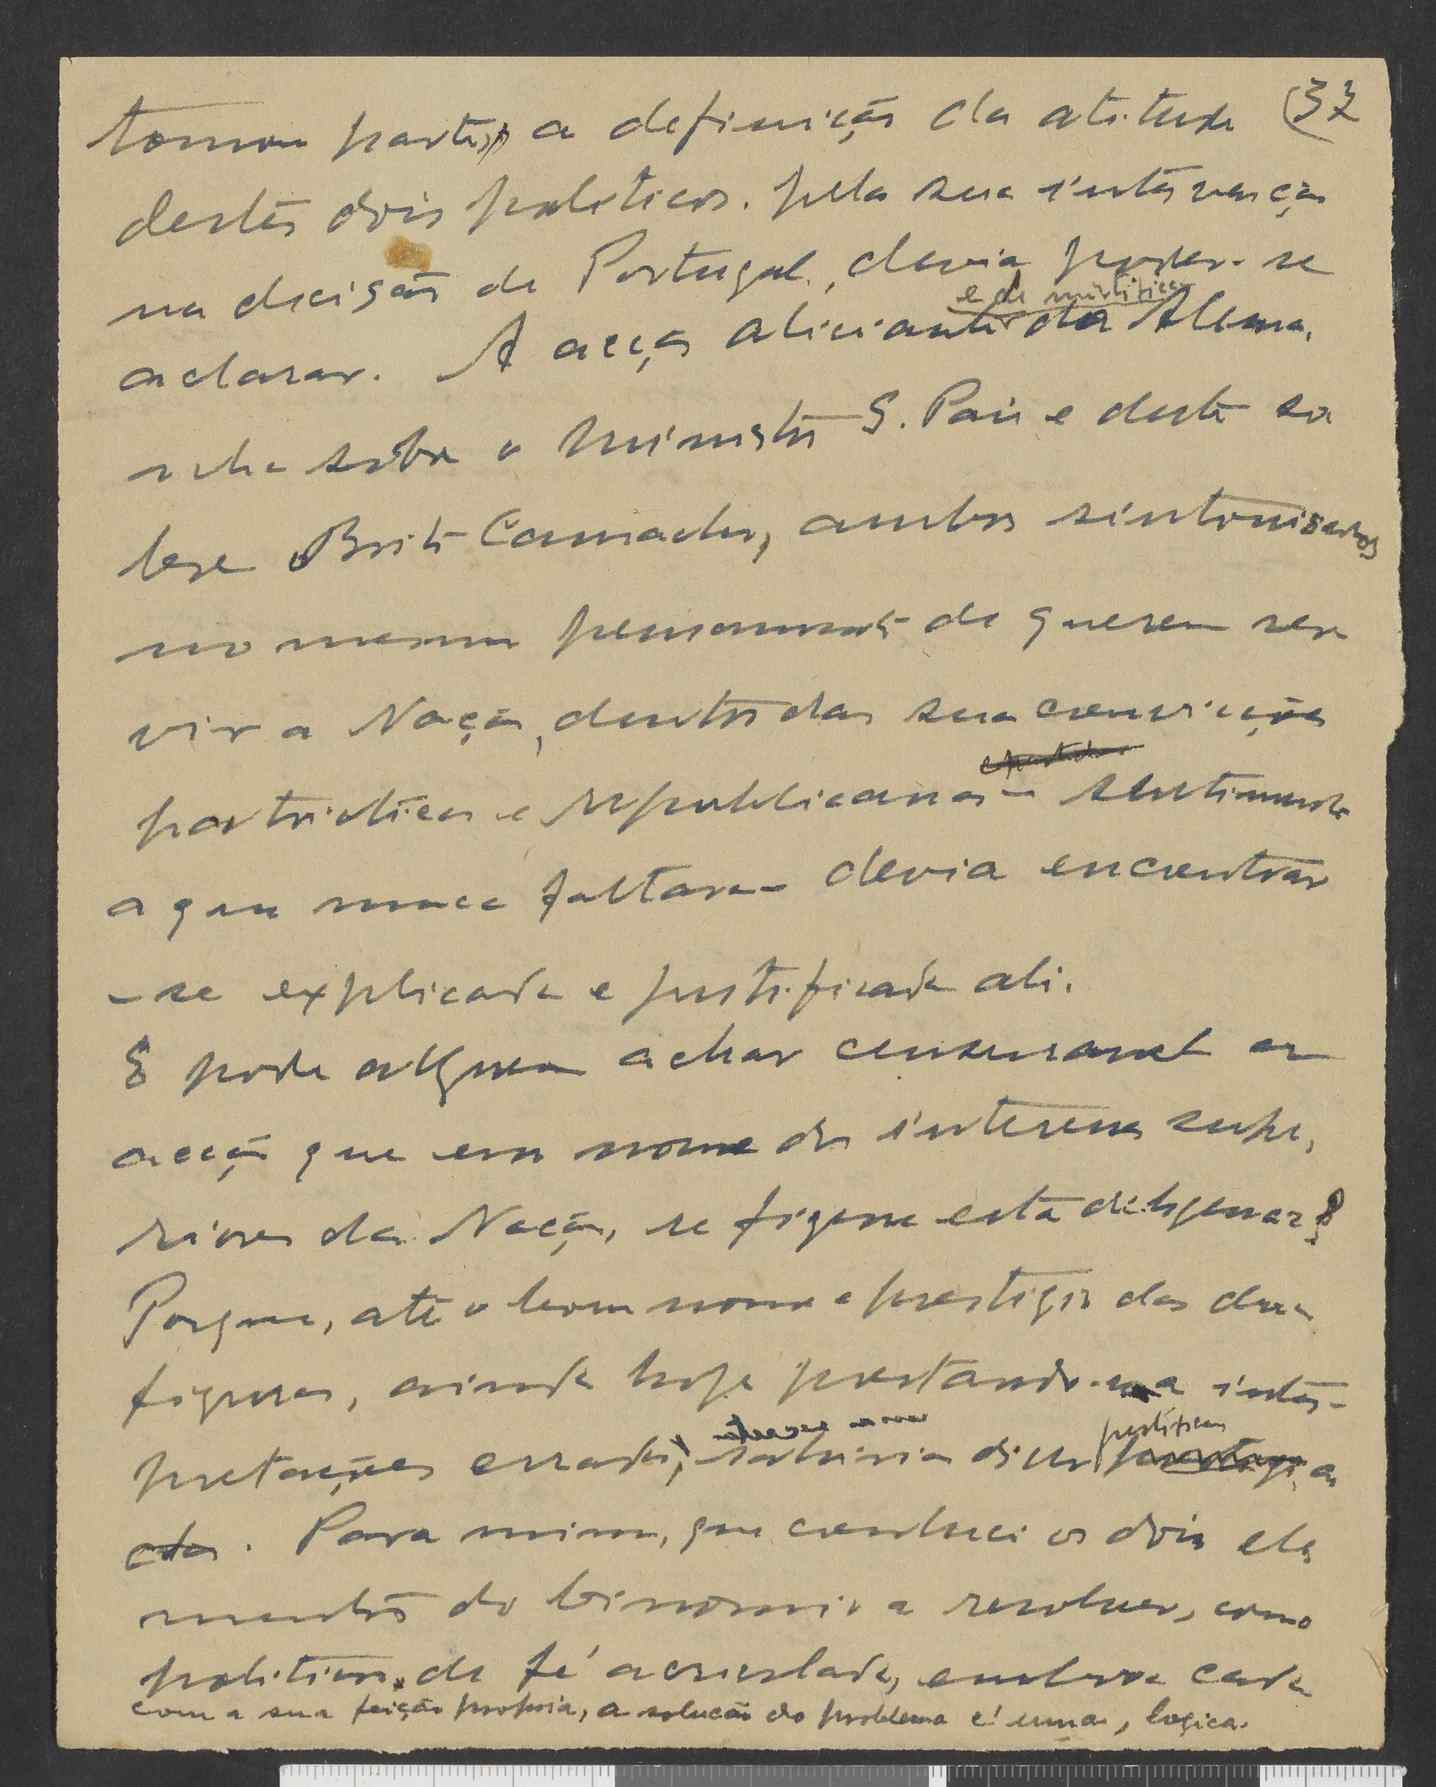 37
tomou parte, a definição da atitude
destes dois politicos. pela sua intervenção
na decisão de Portugal, devia poder-se
aclarar. A acção aliciante e de da Alema,
nha sobre o Ministro S. Pais e deste so
bre Brito Camacho, ambos sintonisados
no mesmo pensamento de querer ser
vir a Nação, dentro das sua convicções
patrioticas e republicanas - sentimento
a que nunca faltaram - devia encontrar
-se explicada e justificada ali.
E pode alguem achar censuravel a
acção que em nome dos interesses supe,
riores da Nação, se fizesse esta diligencia?
Porque, até o bom nome e prestigio das duas
figuras, ainda hoje prestando-se a inter-
pretações erradas, sahiria disso
. Para mim, que conheci os dois ele
mentos do binomio a resolver, como
politicos de fé acrisolada, embora cada
com a sua feição propria, a solução do problema é uma, logica.